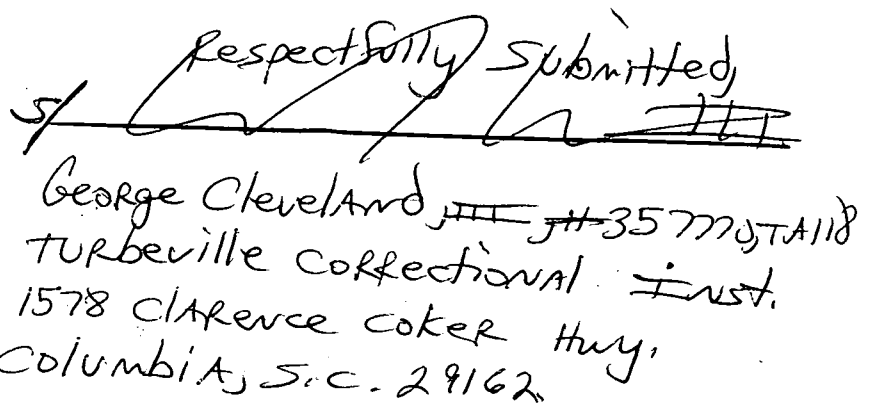 Respectfully Submitted,
S/ III
George Cleveland, III, #357770, TA118
Turbeville Correctional Inst.
1578 Clarence Coker Hwy.
Columbia, S.C. 29162